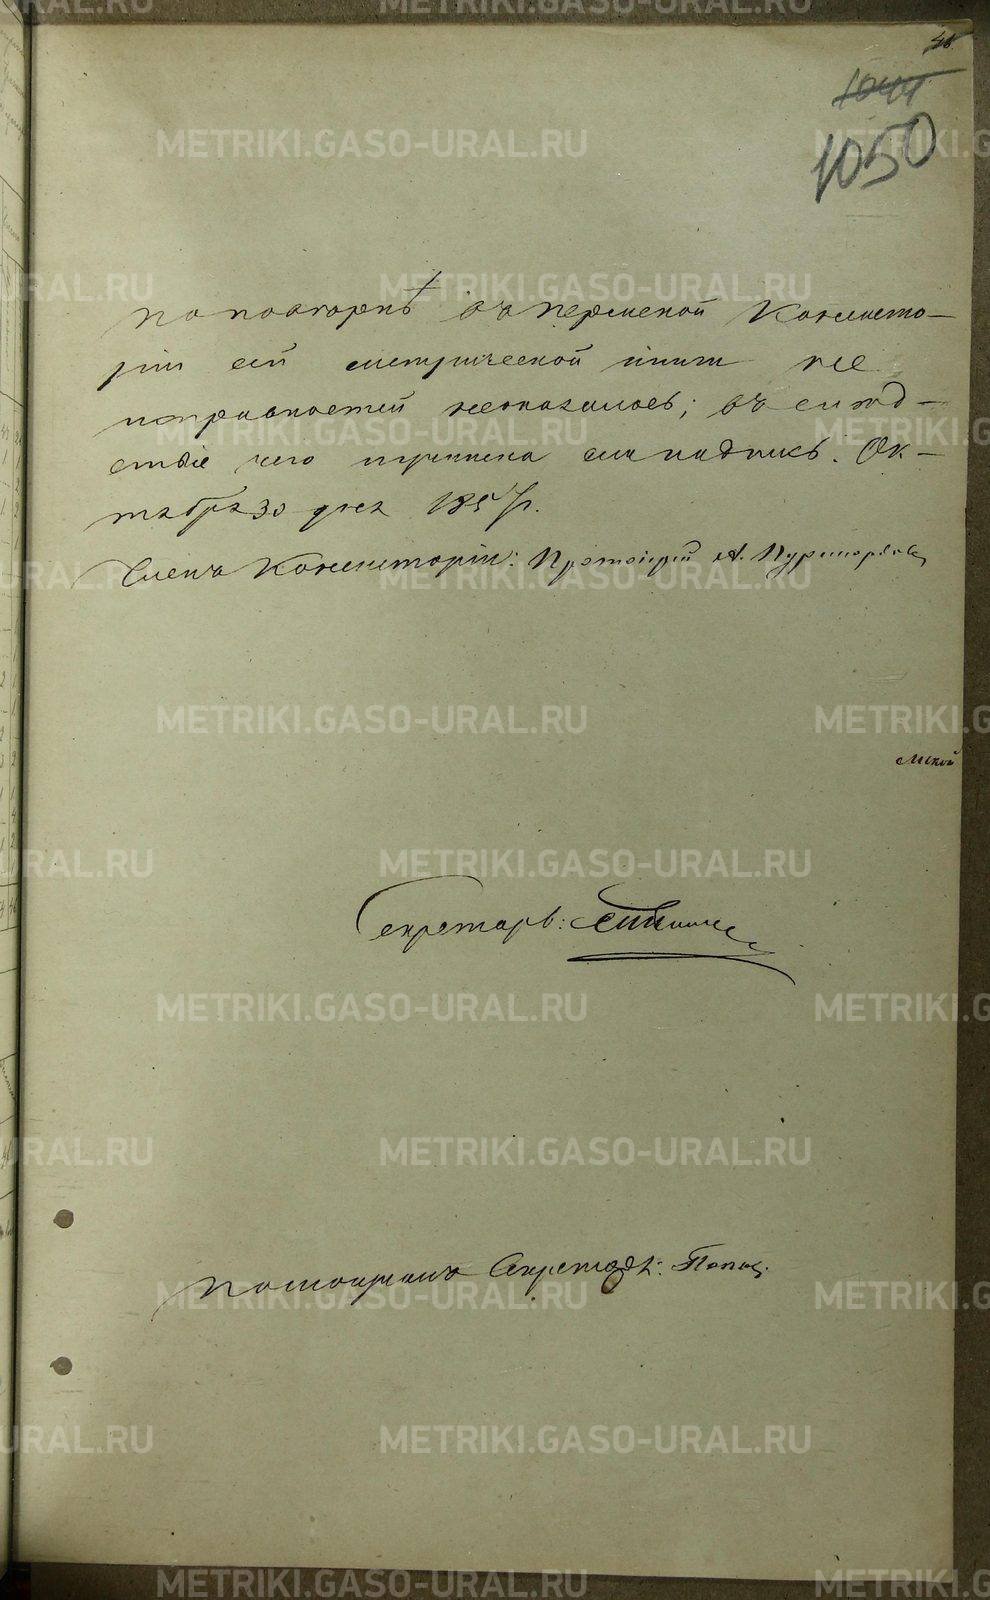 48.
1049
1050
По поверкѣ въ Пермской Консисто-
ріи сей метрической книги не
исправностей неоказалось; въ слѣд-
ствіе чего учинена сія надпись. Ок-
тября 30 дня 1857 г.
Членъ Консисторіи: Протоіерей А.
мской
Секретарь:
Помощникъ Секретаря: Попов
METRIKI.GASO-URAL.RU